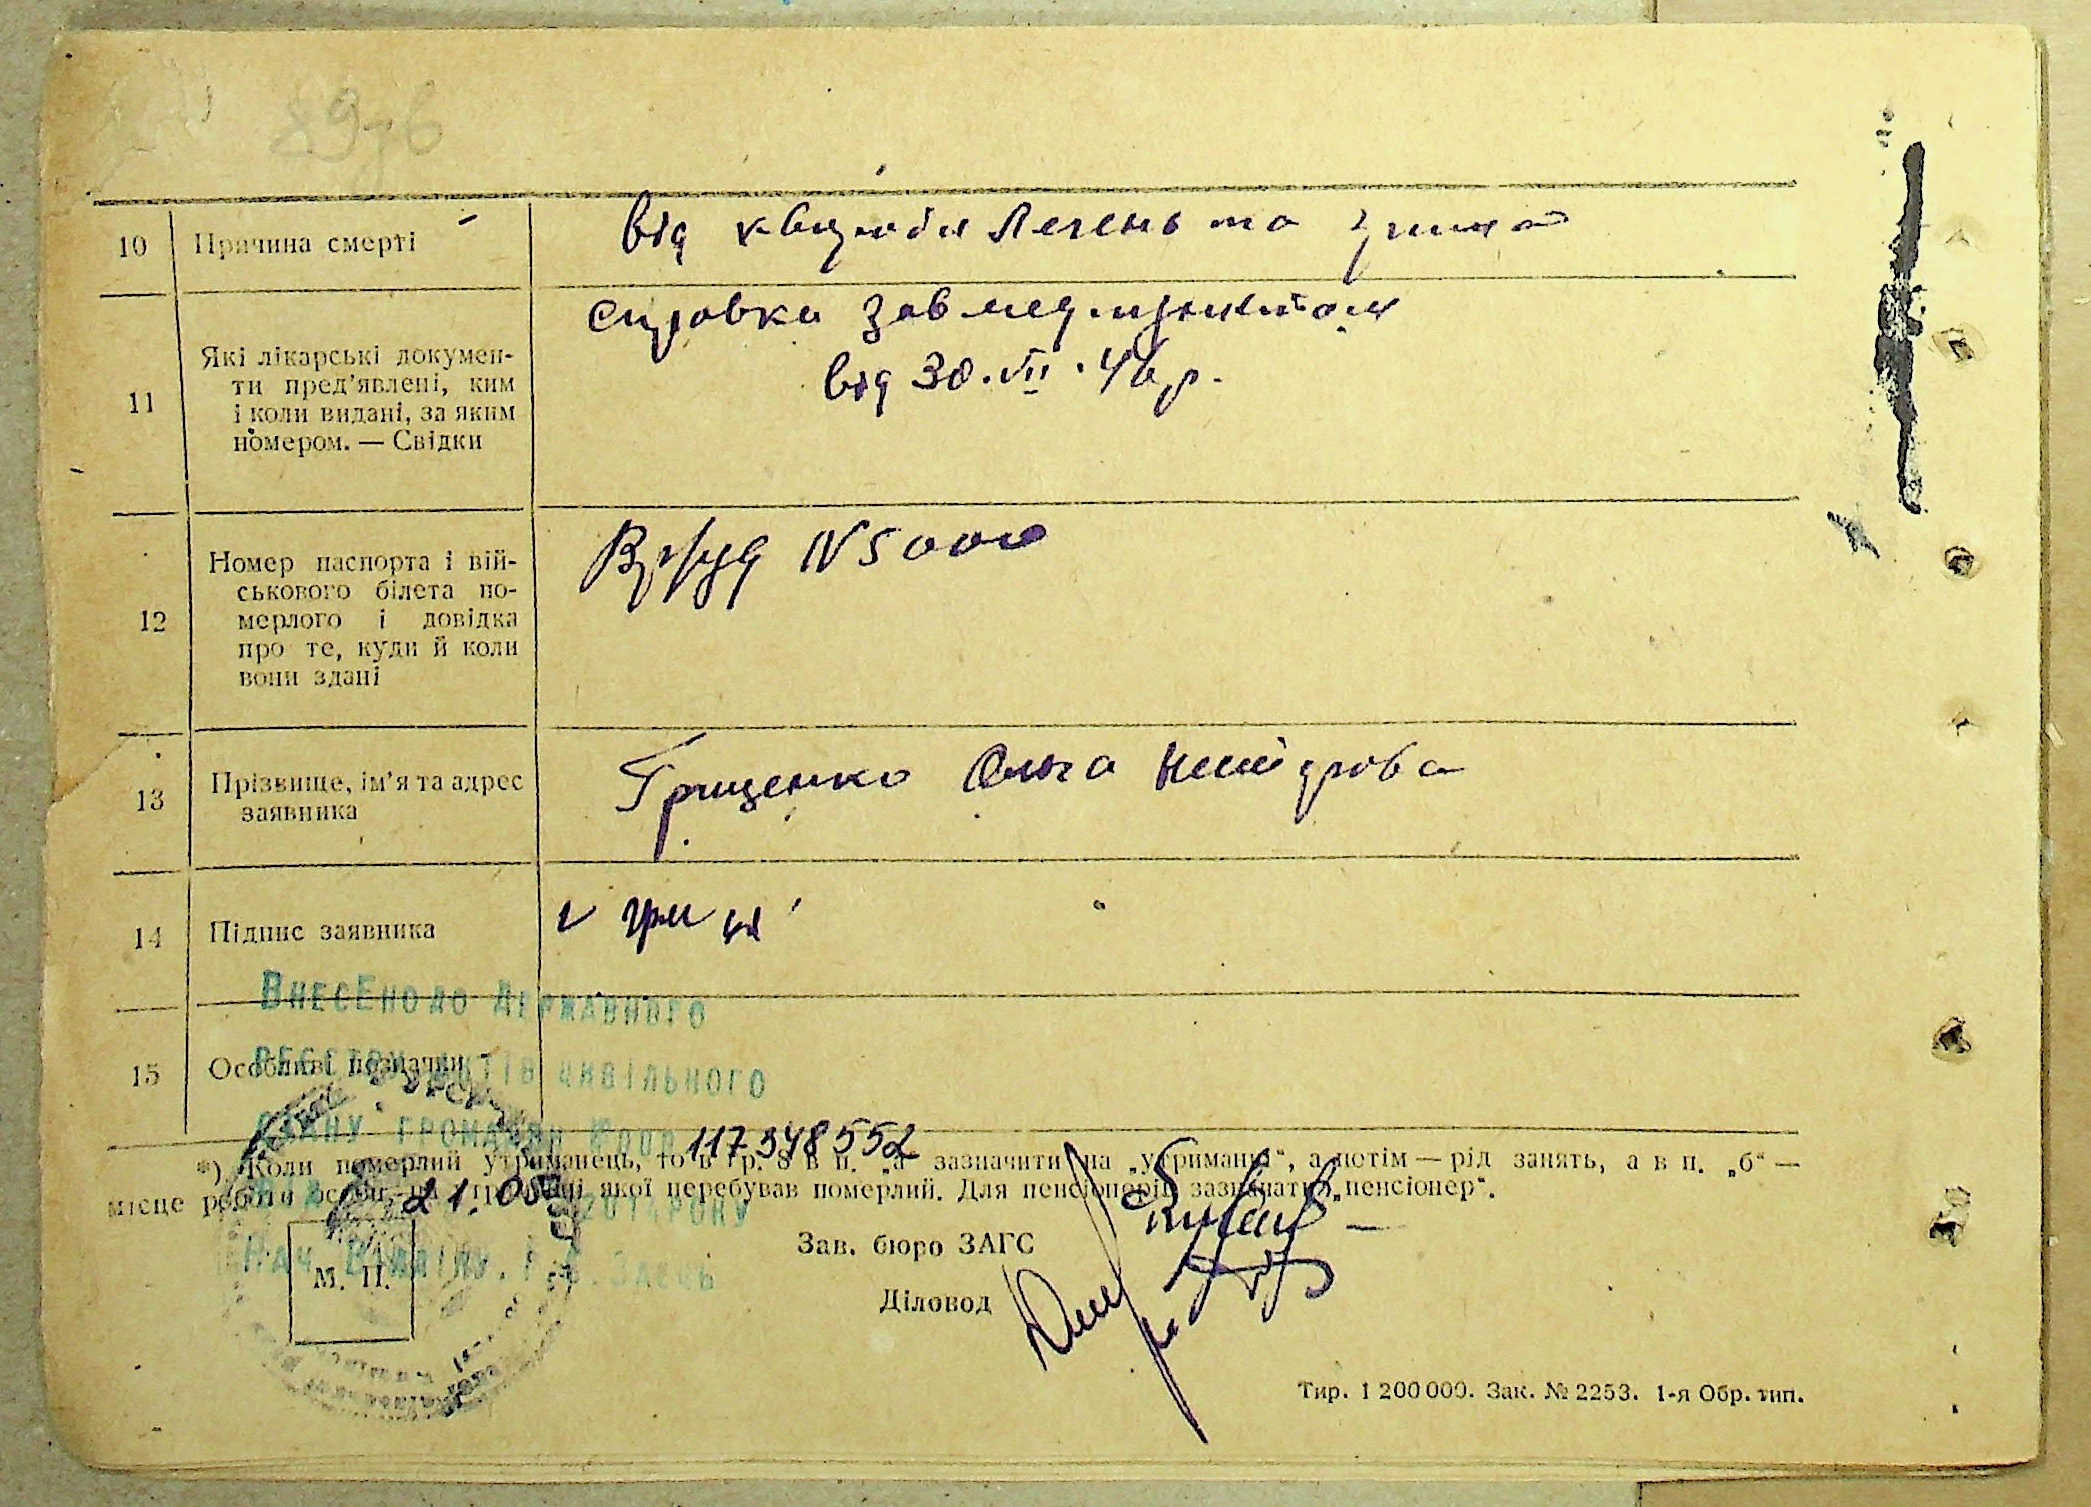 10 Причина смерті
від легень та
11 Які лікарські докумен-
ти пред'явлені, ким
і коли видані, за яким
номером. — Свідки
справка зав медпунктом
від 30.VII.46р.
12 Номер паспорта і вій-
ськового білета по-
мерлого і довідка
про те, куди й коли
вони здані
N 5000
13 Прізвище, ім'я та адрес
заявника
Грищенко Ольга
14 Підпис заявника
гриц
15 Особливі позначки
Внесено до Державного
реєстру актів цивільного
стану громадян
117348552
*) Коли померлий утриманець, то в гр. 8 в п. „а" зазначити „на утриманні", а потім — рід занять, а в п. „б" —
місце роботи особи, на утриманні якої перебував померлий. Для пенсіонерів зазначати „пенсіонер".
21.05 2014 року
Нач. відділу
М. П.
Зав. бюро ЗАГС
Діловод
Тир. 1 200 000. Зак. № 2253. 1-я Обр. тип.